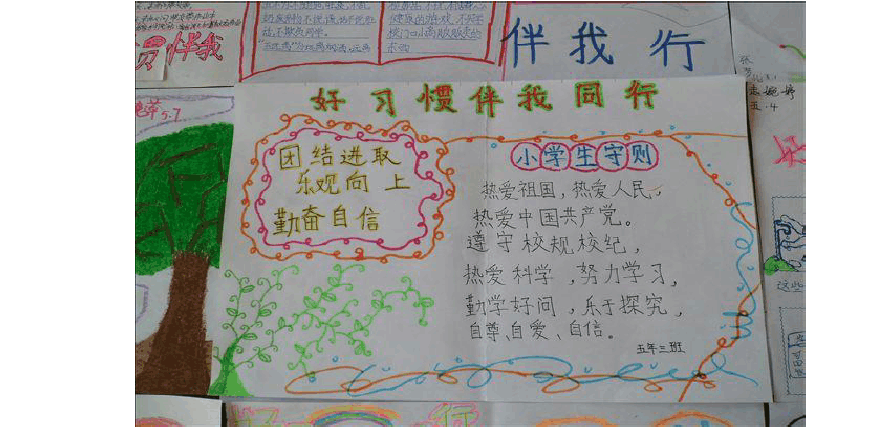 惯伴我
伴我行
张
志婉婷
五.4
5.7
好习惯伴我同行
团结进取
乐观向上
勤奋自信
小学生守则
热爱祖国，热爱人民，
热爱中国共产党。
遵守校规校纪，
热爱科学，努力学习，
勤学好问，乐于探究，
自尊、自爱、自信。
五年三班
这些